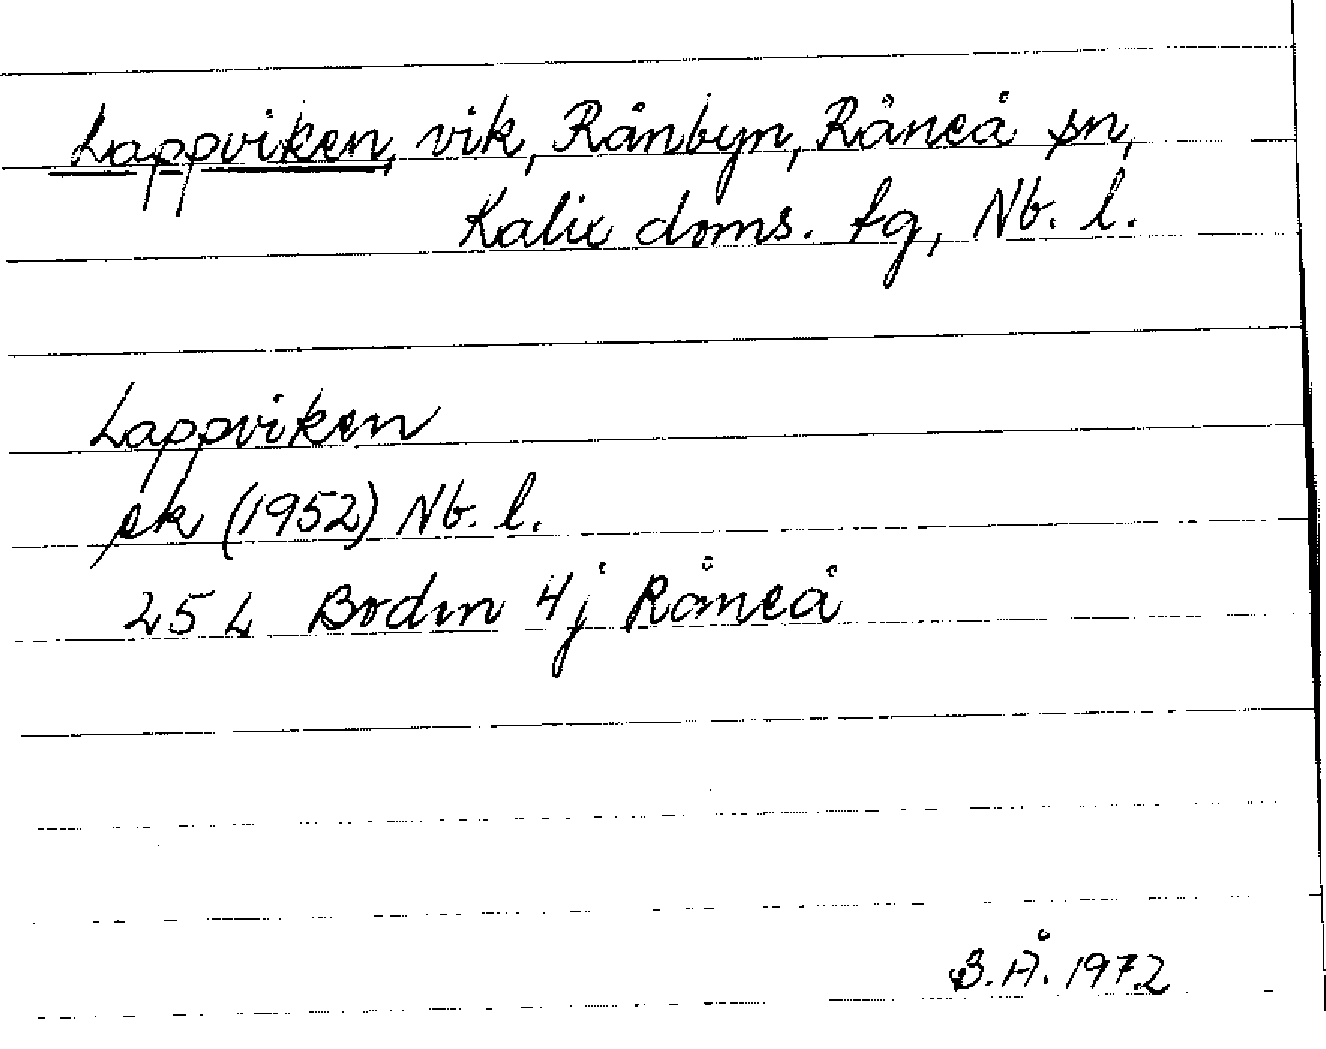 Lappviken, vik, Rånbyn, Råneå sn,
Kalix doms. tg, Nb. l.
Lappviken
ek (1952) Nb. l.
25 L Boden 4j Råneå
B.Å. 1972